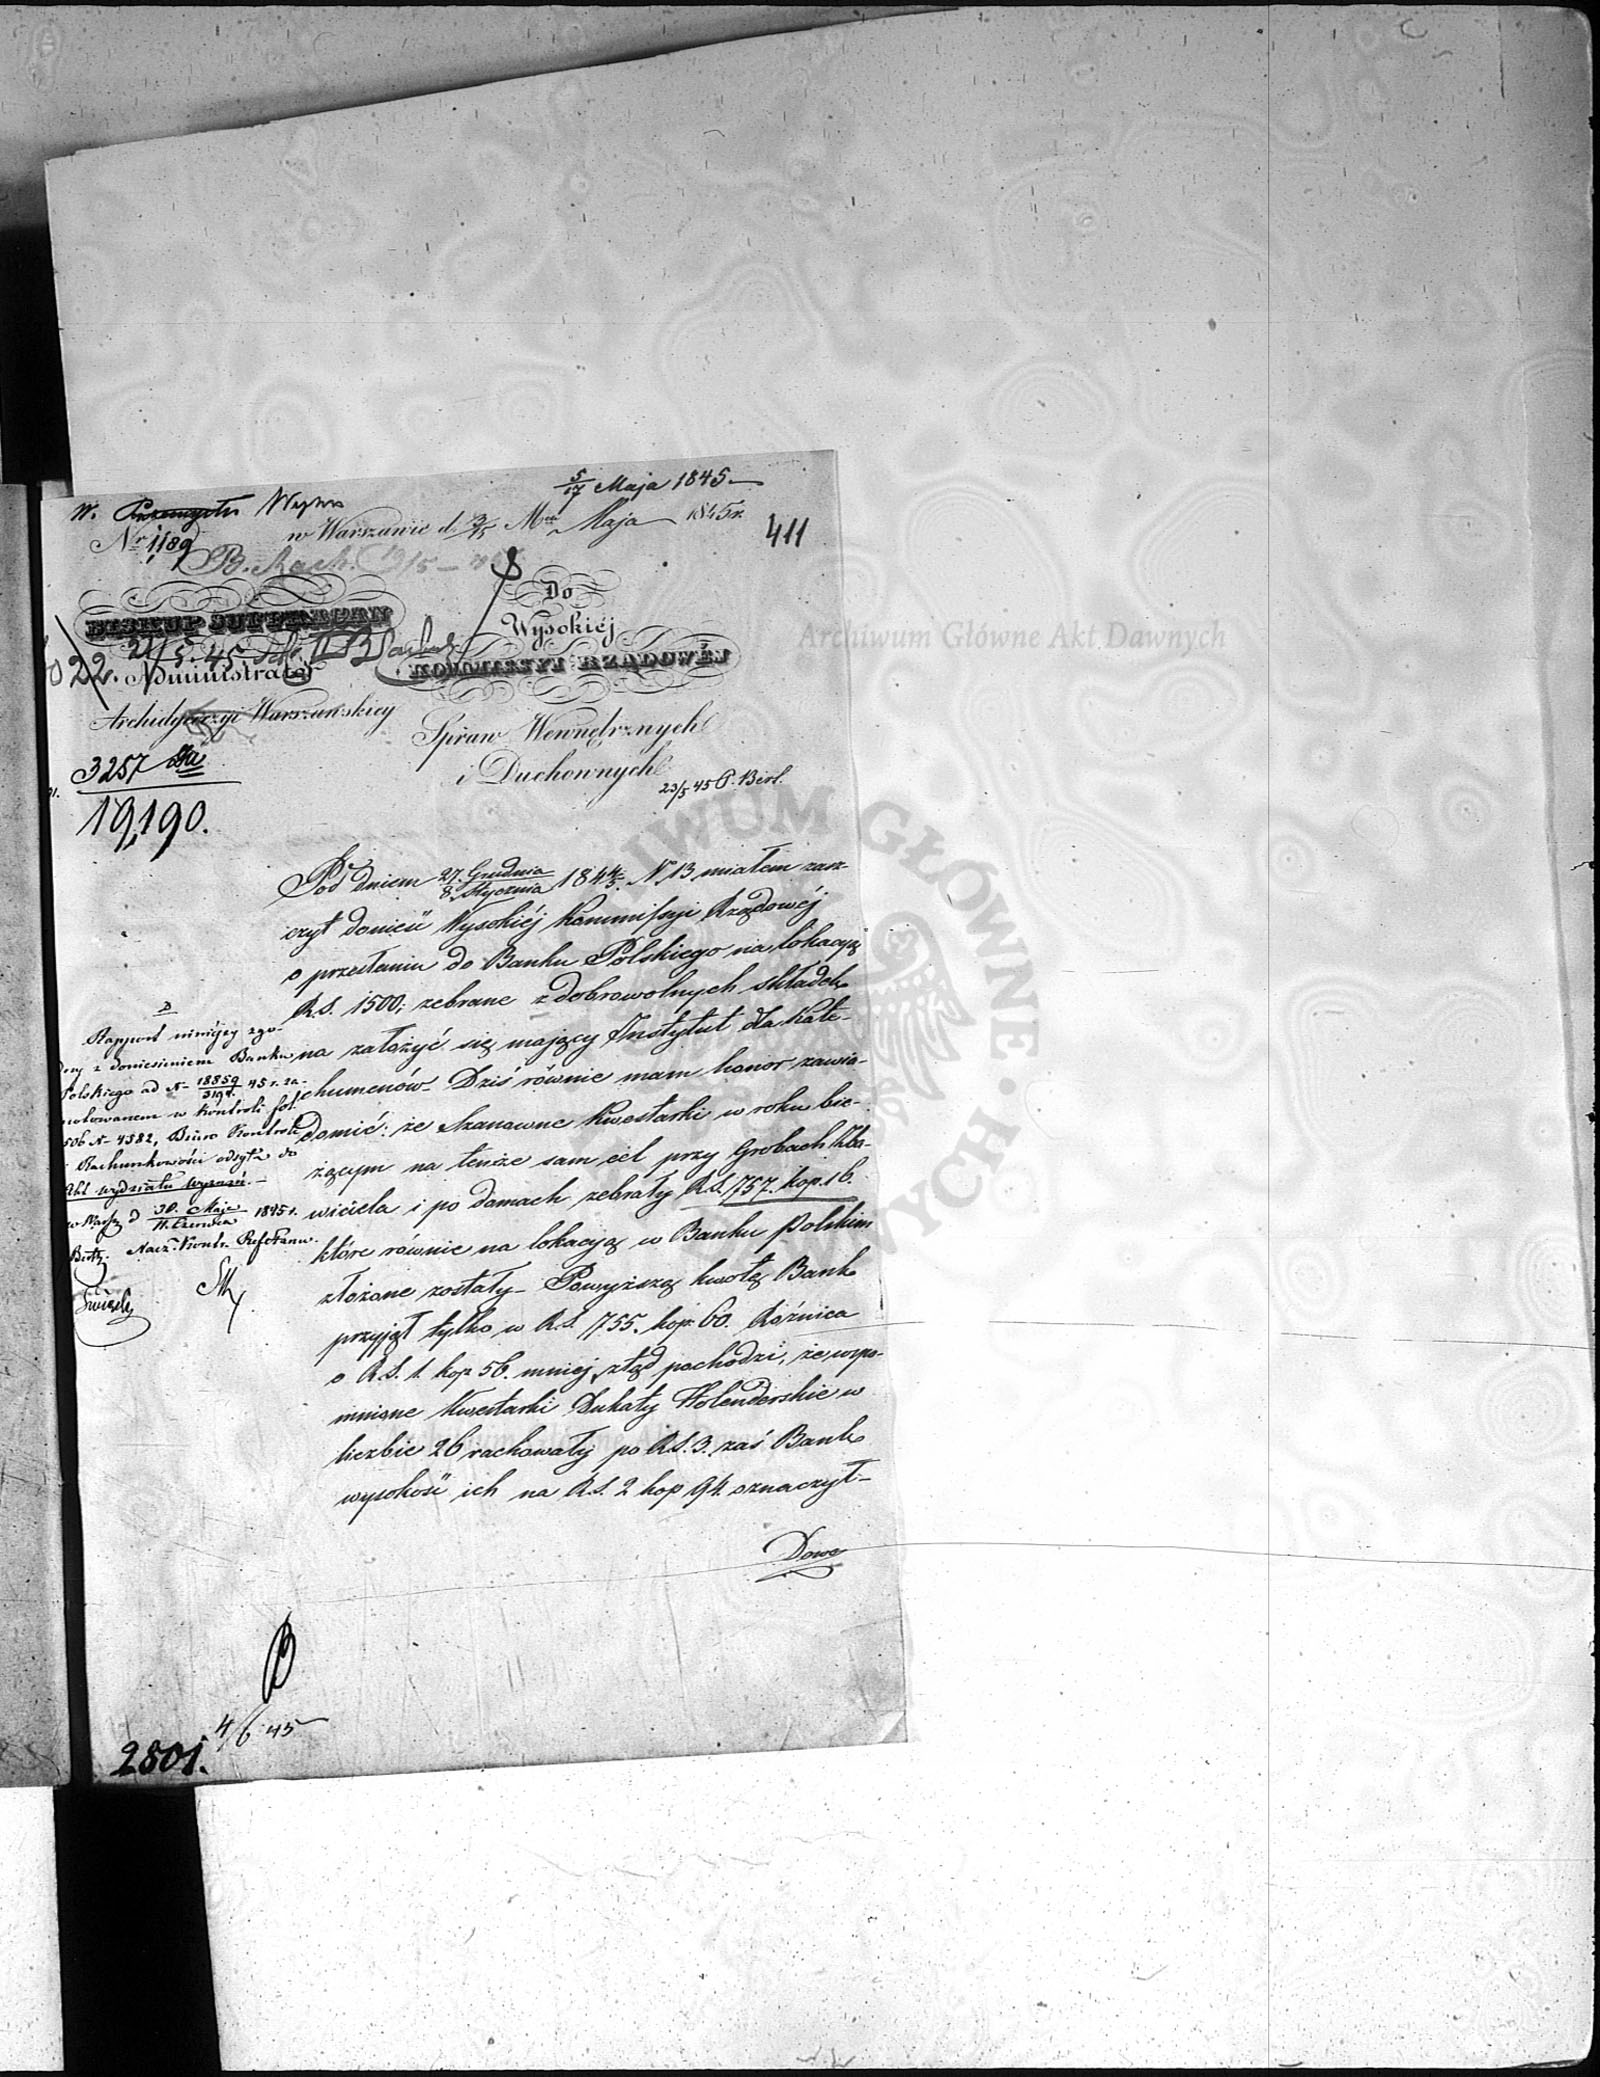 5/17 Maja 1845
W. Przemysłu Wyzn
w Warszawie d. 3/15 Maja 1845 r.
411
Nr 1189
B. Rach. 19/5
Do
BISKUP SUFFRAGAN
Wysokiéj
21/5.45
KOMMISSYI RZĄDOWÉJ
22.
Administrator
Archidyecezyi Warszawskiey
Spraw Wewnętrznych
i Duchownych
3257
23/5 45
19,190.
Pod dniem 27. Grudnia / 8. Stycznia 184 4/5 N. 13 miałem zasz-
czyt donieść Wysokiéj Kommissyi Rządowéj
o przesłaniu do Banku Polskiego na lokacyą
R.S. 1500; zebrane z dobrowolnych składek
na założyć się mający Instytut dla Kate-
chumenów_ Dziś równie mam honor zawia-
domić: że Szanowne Kwestarki w roku bie-
żącym na tenże sam cel przy Grobach Zba-
wiciela i po domach zebrały R.S. 757. kop. 16.
które równie na lokacyą w Banku Polskim
złożone zostały_ Powyższą kwotę Bank
przyjął tylko w R.S. 755. kop. 60. Różnica
o R.S. 1. kop. 56. mniej ztąd pochodzi, że wspo-
mnione Kwestarki Dukaty Holenderskie w
liczbie 26 rachowały po R.S. 3. zaś Bank
wysokość ich na R.S. 2 kop 94. oznaczył_
Rapport niniejszy zgo-
dny z doniesieniem Banku
Polskiego ad N. 18859 45 r. za-
notowanem w Kontroli fol.
506 N. 4382, Biuro Kontroli
i Rachunkowości odsyła do
Akt wydziału Wyznań._
w Warsz d 30. Maja / 11. Czerwca 1845 r.
Nacz. Kontr.
4/6 45
2801.
Archiwum Główne Akt Dawnych
ARCHIWUM GŁÓWNE AKT DAWNYCH